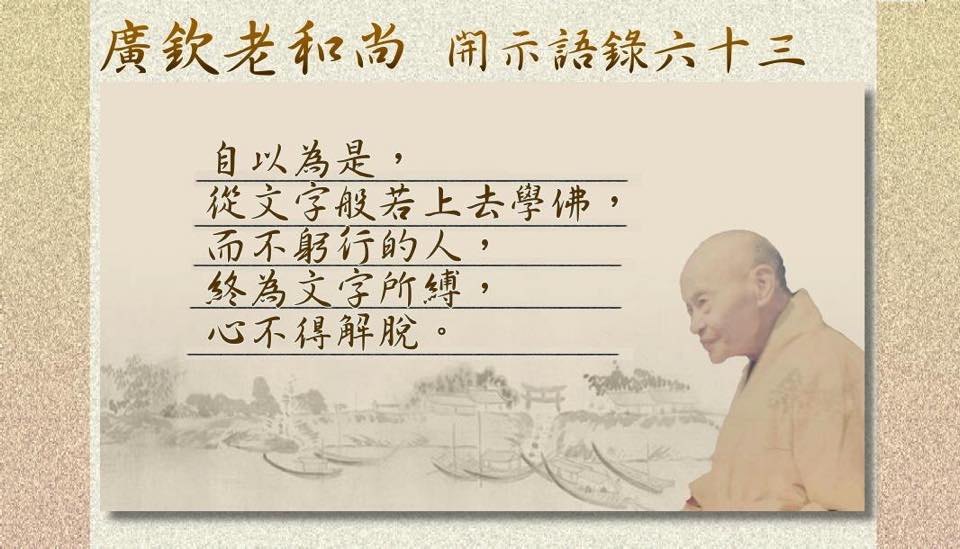 廣欽老和尚 開示語錄六十三
自以為是，
從文字般若上去學佛，
而不躬行的人，
終為文字所縛，
心不得解脫。